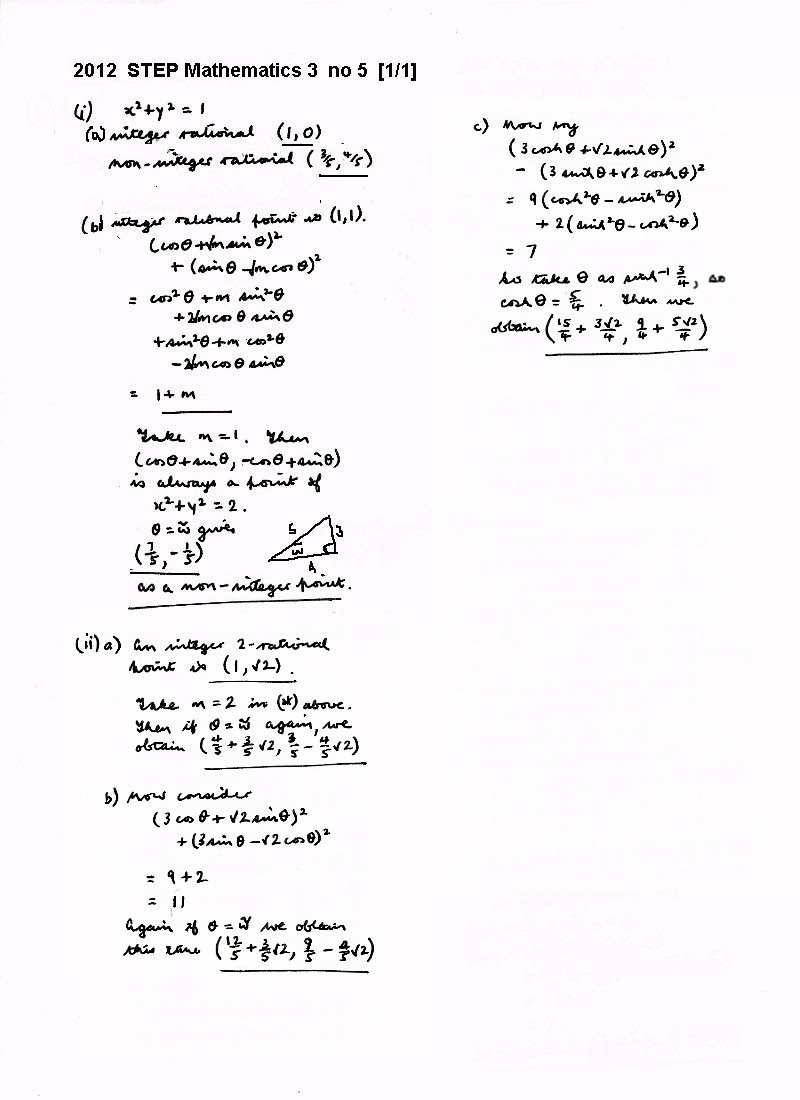 2012 STEP Mathematics 3 no 5 [1/1]
(i) x²+y² = 1
(a) integer rational (1,0)
non-integer rational (3/5, 4/5)
(b) integer rational point is (1,1).
(cosθ+√m sinθ)²
+ (sinθ -√m cosθ)²
= cos²θ + m sin²θ
+2√m cosθ sinθ
+sin²θ+m cos²θ
-2√m cosθ sinθ
= 1+m
Take m=1. Then
(cosθ+sinθ, -cosθ+sinθ)
is always a point of
x²+y² = 2.
θ = gives
(7/5, -1/5)
5 3
4
as a non-integer point.
(ii) a) An integer 2-rational
point is (1, √2).
Take m=2 in (*) above.
Then if θ = again, we
obtain (4/5 + 3/5 √2, 3/5 - 4/5 √2)
b) Now consider
(3cosθ+√2 sinθ)²
+(3sinθ-√2cosθ)²
= 9+2
= 11
Again if θ = we obtain
this time (12/5 + 3/5 √2, 9/5 - 4/5 √2)
c) Now try
(3coshθ+√2sinhθ)²
- (3sinhθ+√2 coshθ)²
= 9(cosh²θ - sinh²θ)
+ 2(sinh²θ-cosh²θ)
= 7
So take θ as sinh⁻¹ 3/4, so
coshθ = 5/4. Then we
obtain (15/4 + 3√2/4, 9/4 + 5√2/4)